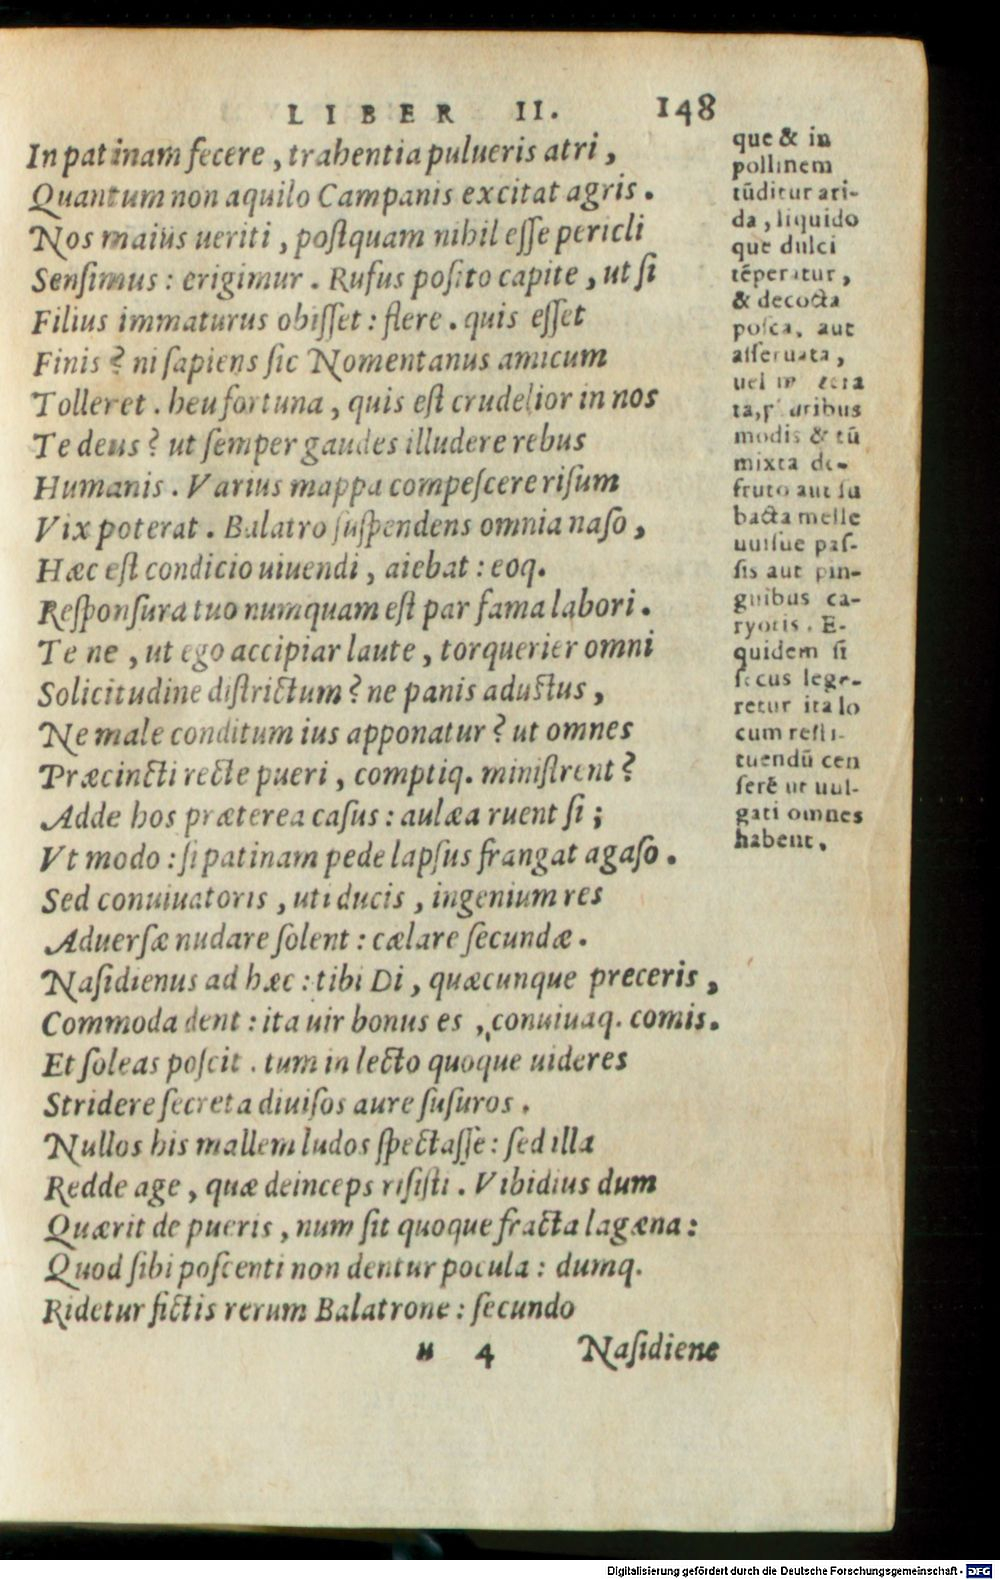 LIBER II. 148
In patinam fecere, trahentia pulueris atri,
Quantum non aquilo Campanis excitat agris.
Nos maius ueriti, postquam nihil esse pericli
Sensimus: erigimur. Rufus posito capite, ut si
Filius immaturus obisset: flere. quis esset
Finis? ni sapiens sic Nomentanus amicum
Tolleret. heu fortuna, quis est crudelior in nos
Te deus? ut semper gaudes illudere rebus
Humanis. Varius mappa compescere risum
Vix poterat. Balatro suspendens omnia naso,
Hæc est condicio uiuendi, aiebat: eoq.
Responsura tuo numquam est par fama labori.
Te ne, ut ego accipiar laute, torquerier omni
Solicitudine districtum? ne panis adustus,
Ne male conditum ius apponatur? ut omnes
Præcincti recte pueri, comptiq. ministrent?
Adde hos præterea casus: aulæa ruent si;
Vt modo: si patinam pede lapsus frangat agaso.
Sed conuiuatoris, uti ducis, ingenium res
Aduersæ nudare solent: cælare secundæ.
Nasidienus ad hæc: tibi Di, quæcunque preceris,
Commoda dent: ita uir bonus es, conuiuaq. comis.
Et soleas poscit. tum in lecto quoque uideres
Stridere secreta diuisos aure susuros.
Nullos his mallem ludos spectasse: sed illa
Redde age, quæ deinceps risisti. Vibidius dum
Quærit de pueris, num sit quoque fracta lagæna:
Quod sibi poscenti non dentur pocula: dumq.
Ridetur fictis rerum Balatrone: secundo
u 4 Nasidiene
que & in
pollinem
tūditur ari-
da, liquido
que dulci
tēperatur,
& decocta
posca, aut
asseruata,
uel in
ta, pluribus
modis & tū
mixta de-
fruto aut su
bacta melle
uuisue pas-
sis aut pin-
guibus ca-
ryotis. E-
quidem si
secus lege-
retur ita lo
cum resti-
tuendū cen
serē ut uul-
gati omnes
habent.
Digitalisierung gefördert durch die Deutsche Forschungsgemeinschaft - DFG